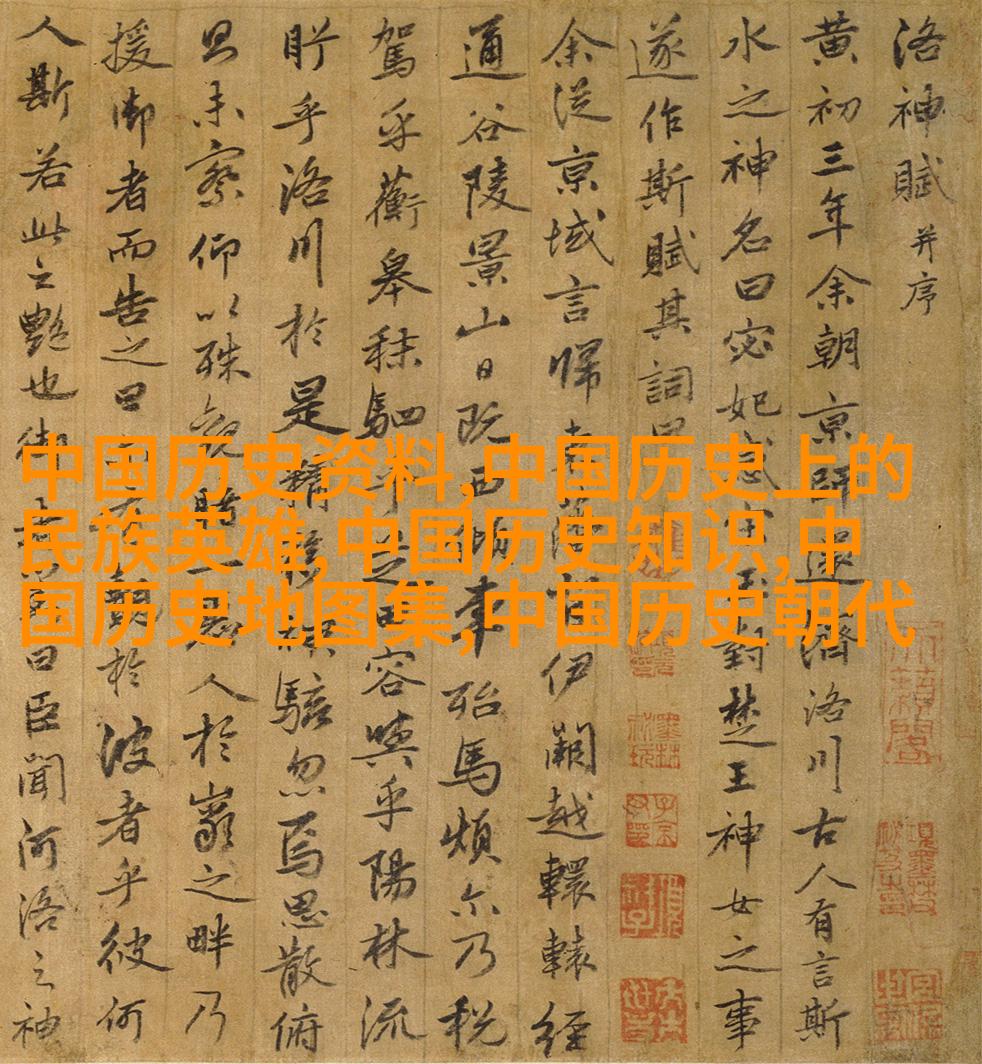 洛神賦 并序
黄初三年余朝京師還濟洛川古人有言斯
水之神名曰宓妃感宋玉對楚王神女之事
遂作斯賦其詞曰
余從京域言歸東藩背伊闕越轘轅經
通谷陵景山日既西傾車殆馬煩尒乃税
駕乎蘅皋秣駟乎芝田容與乎陽林流
眄乎洛川於是精移神駭忽焉思散俯
則未察仰以殊觀覩一麗人於巖之畔乃
援御者而告之曰尒有覿於彼者乎彼何
人斯若此之艷也御者對曰臣聞河洛之神
中国历史资料,中国历史上的
民族英雄,中国历史知识,中
国历史地图集,中国历史朝代